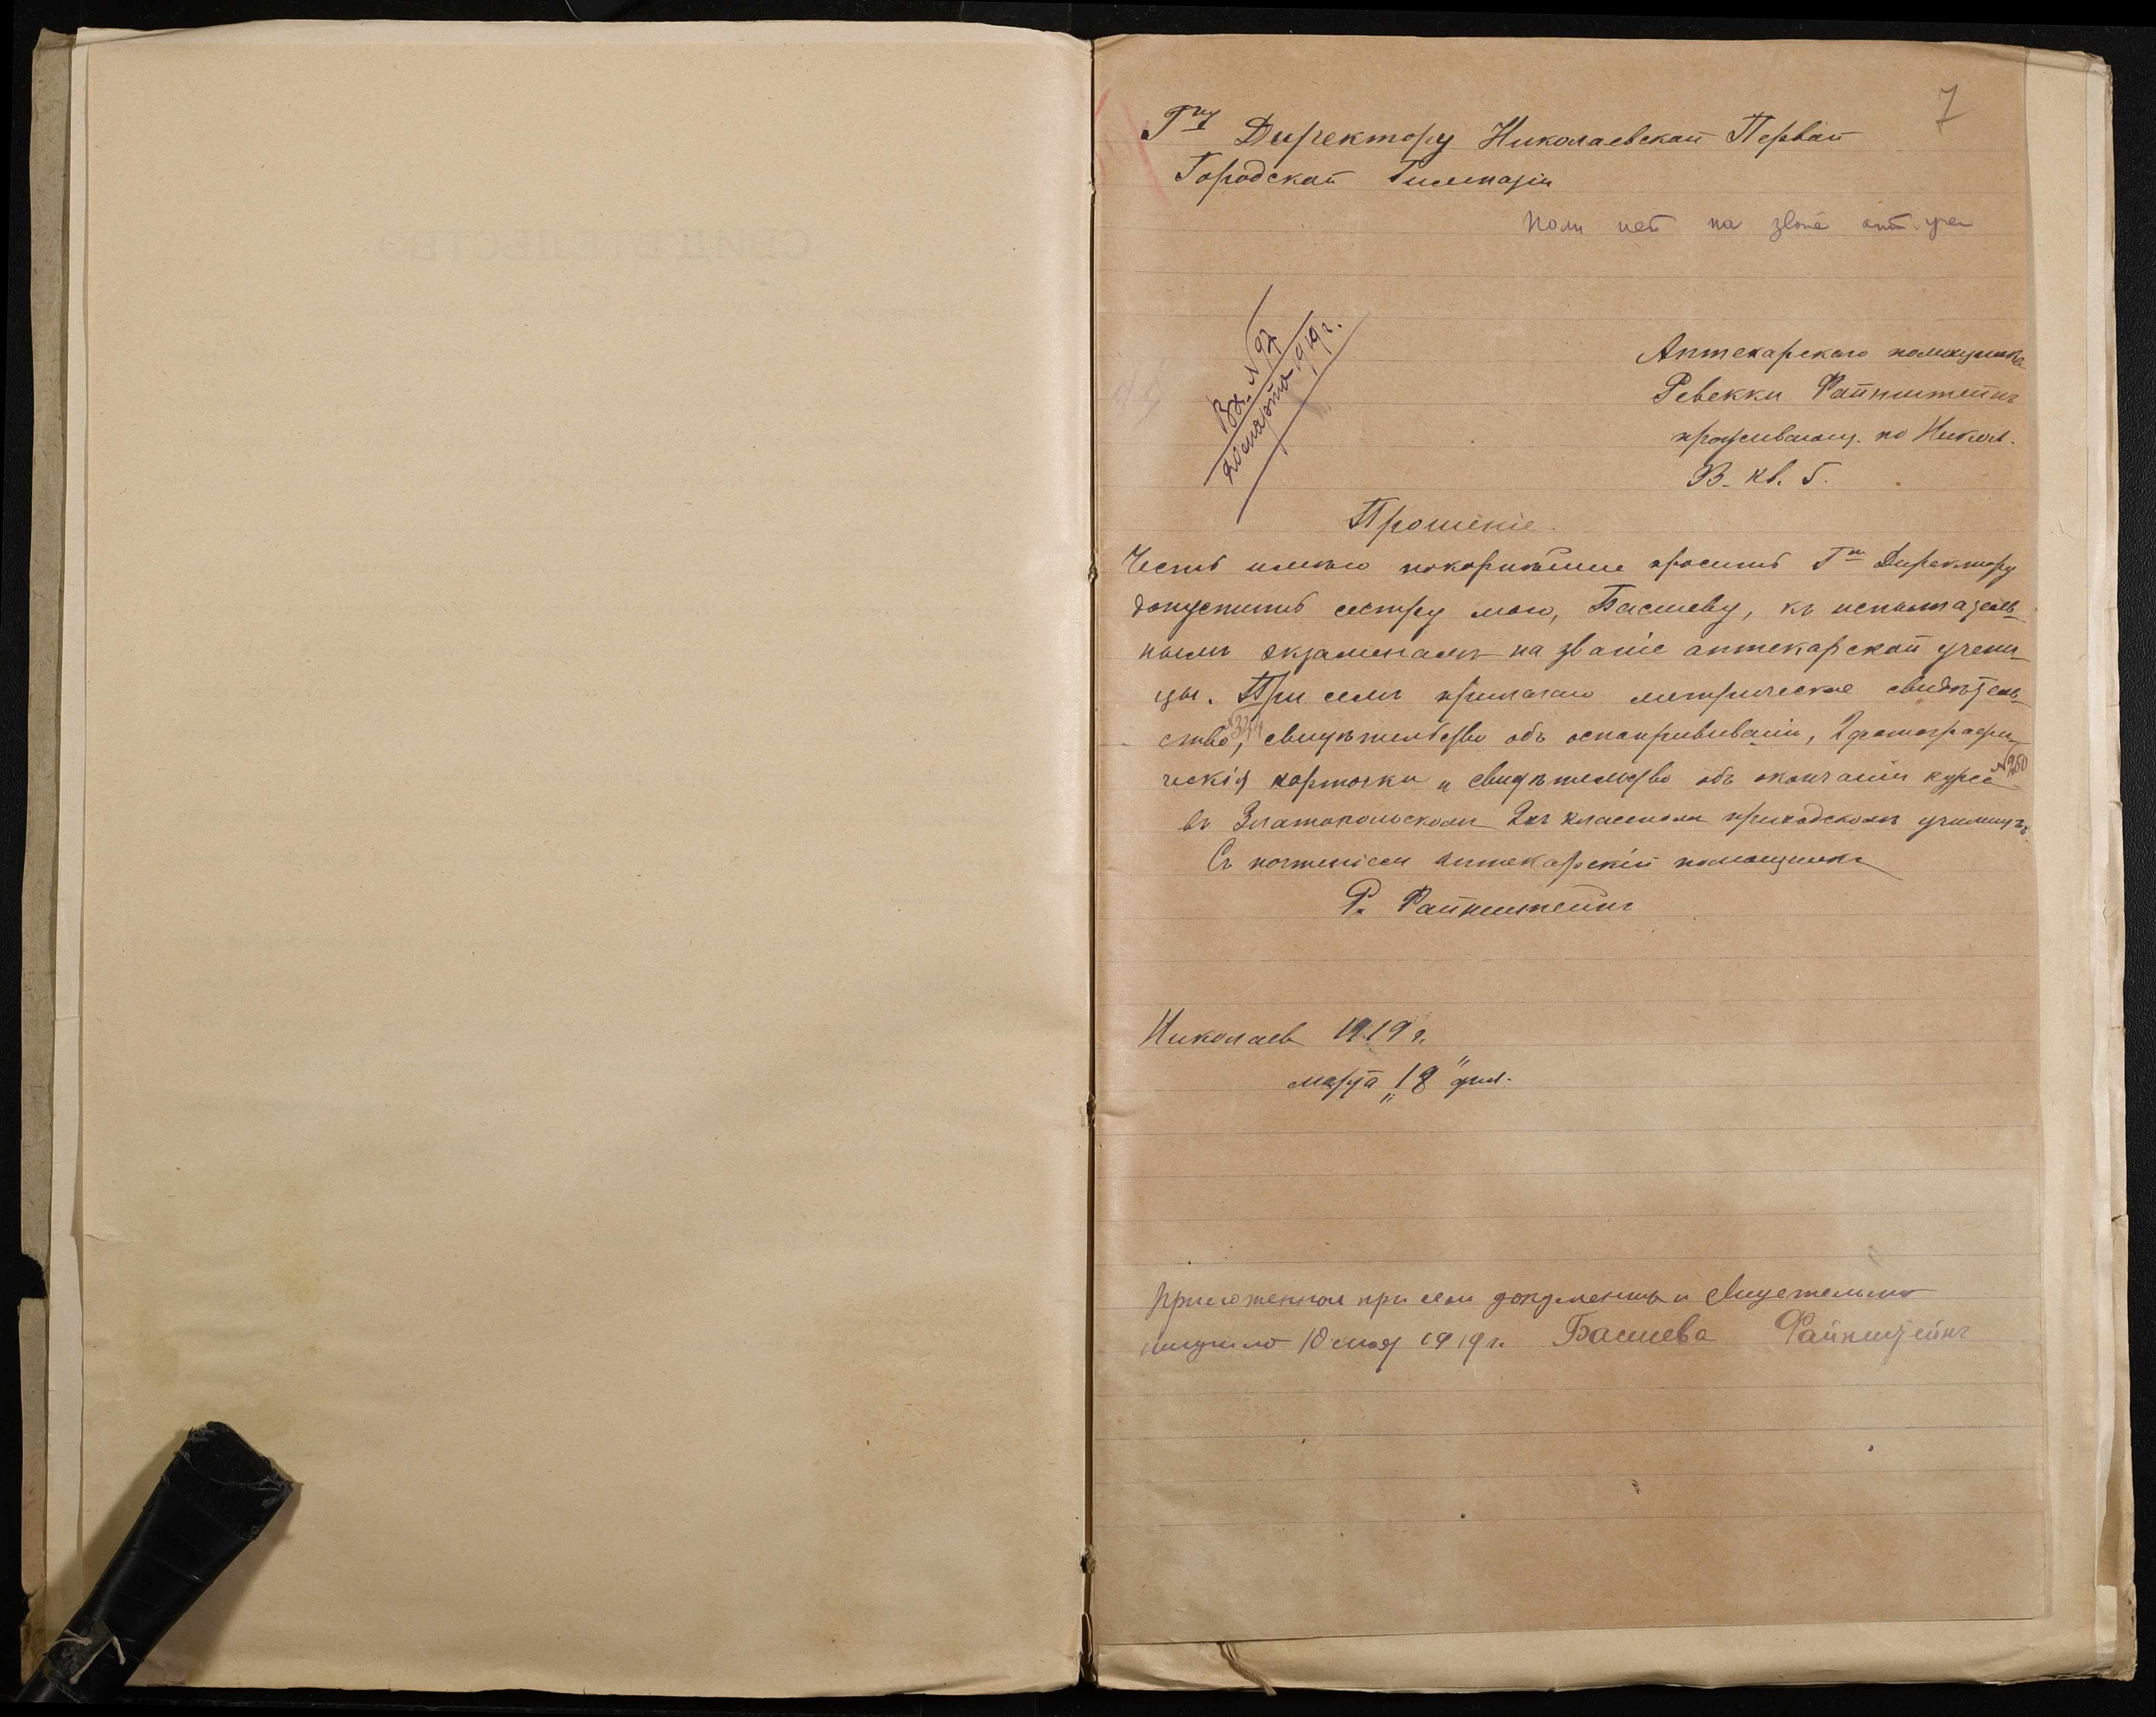 7
Г-ну Директору Николаевской Первой
Городской Гимназіи
на зван апт. учен
Вх. N 97
20 марта 1919 г.
Аптекарского помощника
Ревекки Файнштейнъ
проживающ. по Никол.
кв. 5.
Прошеніе.
Честь имѣю покорнѣйше просить Г-на Директору
допустить сестру мою, Басшеву, къ испытатель-
нымъ экзаменамъ на званіе аптекарской учени-
цы. При семъ прилагаю метрическое свидѣтель-
ство, N 324 свидѣтельство объ оспопрививаніи, 2 фотографи-
ческія карточки и свидѣтельство объ окончаніи курса N 250
въ Златопольскомъ 2хъ классномъ приходскомъ училищѣ.
Съ почтеніемъ аптекарскій помощникъ
Р. Файнштейнъ
Николаев 1919 г.
марта „18" дня.
Приложенные при сем документы и свидетельство
получила 10 мая 1919 г. Басшева Файнштейнъ